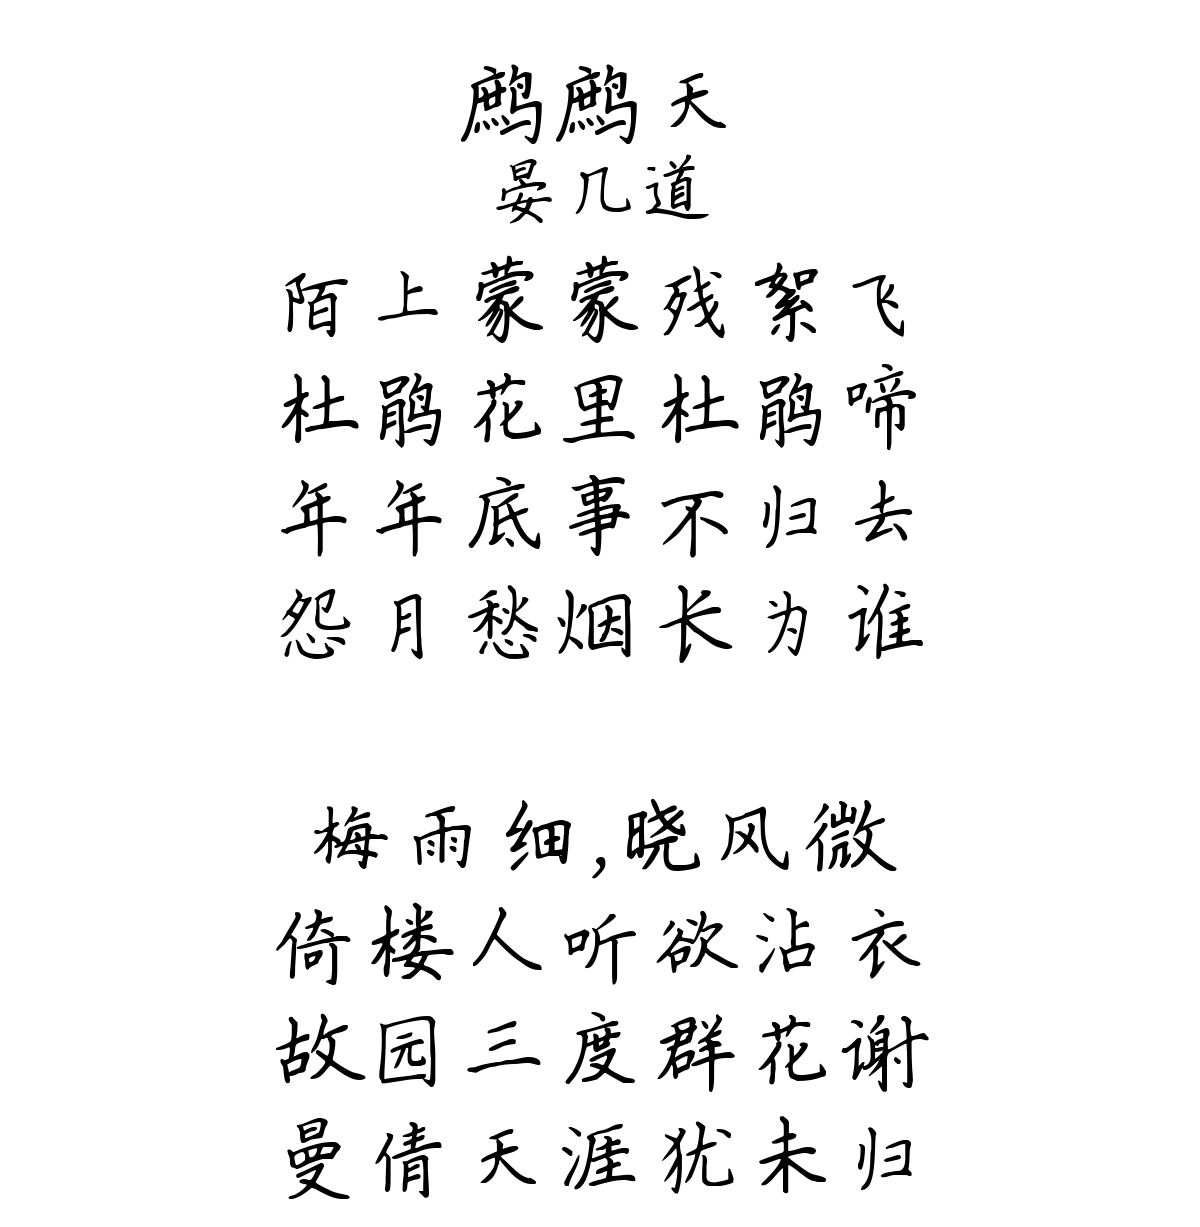 鹧鹧天
晏几道
陌上蒙蒙残絮飞
杜鹃花里杜鹃啼
年年底事不归去
怨月愁烟长为谁
梅雨细,晓风微
倚楼人听欲沾衣
故园三度群花谢
曼倩天涯犹未归